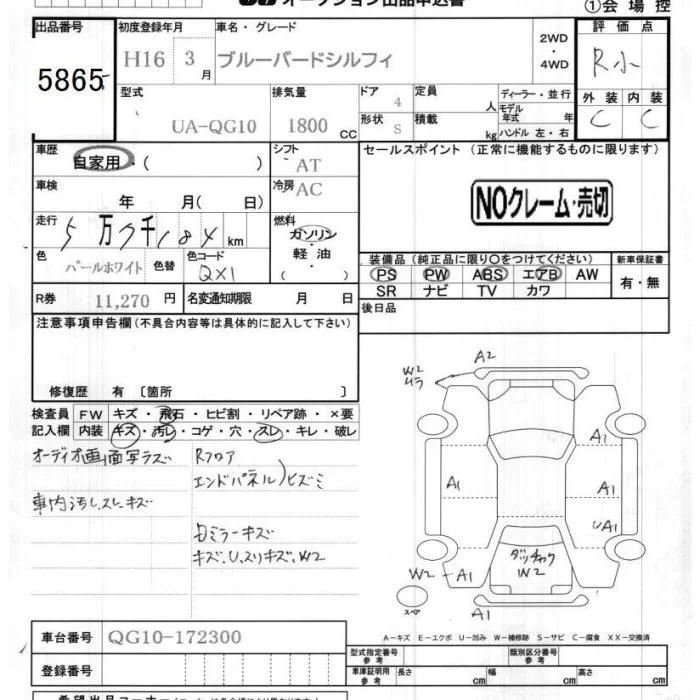 オークション出品申込書
①会場控
出品番号 初度登録年月 車名・グレード 評価点
5865 H16 3月 ブルーバードシルフィ 2WD・4WD R小
型式 排気量 ドア 定員 ディーラー・並行 外装 内装
UA-QG10 1800 CC 4 人 モデル年式 年 C C
形状 積載
S kg ハンドル 左・右
車歴 シフト セールスポイント (正常に機能するものに限ります)
自家用・( ) AT
車検 冷房 NOクレーム・売切
年 月( 日) AC
走行 燃料
5万7千184km ガソリン・軽油・( )
色 色替 色コード 装備品(純正品に限り〇をつけてください) 新車保証書
パールホワイト QX1 PS PW ABS エアB AW 有・無
SR ナビ TV カワ
R券 11,270 円 名変通知期限 月 日 後日品
注意事項申告欄(不具合内容等は具体的に記入して下さい)
修復歴 有 〔箇所 〕
検査員 FW キズ・飛石・ヒビ割・リペア跡・×要
記入欄 内装 キズ・汚レ・コゲ・穴・スレ・キレ・破レ
オーディオ画面写ラズ Rフロア
エンドパネル)ヒズミ
車内汚レスレキズ
ミラーキズ
キズ、U、スリキズ、W2
A2
W2
ムラ
A1
A1 A1
UA1
ダッチャク
W2
W2 A1
スペア A1
A-キズ E-エクボ U-凹み W-補修跡 S-サビ C-腐食 XX-交換済
車台番号 QG10-172300
型式指定番号 参考 類別区分番号 参考
登録番号 車庫証明用 参考 長さ cm 幅 cm 高さ cm